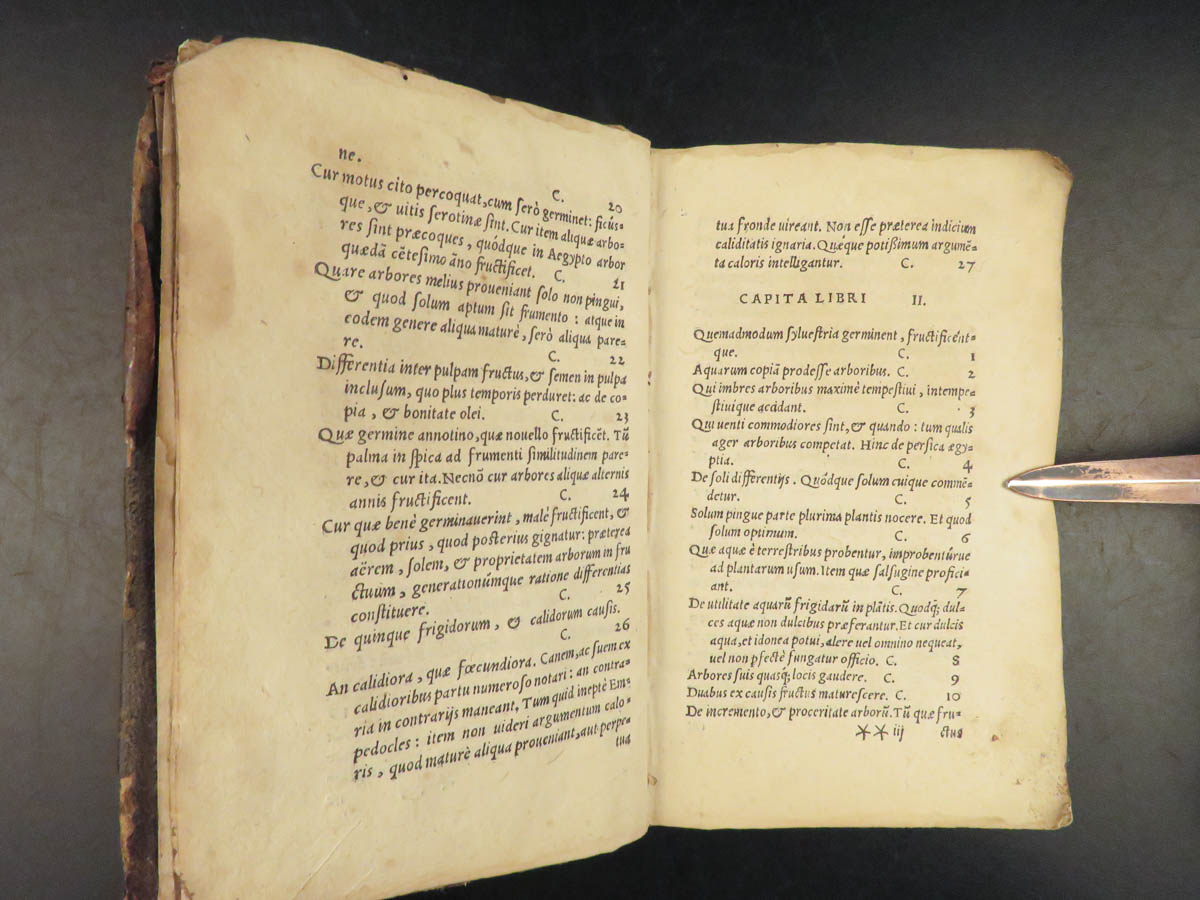 ne. C. 20
Cur motus cito percoquat, cum serò germinet: ficús-
que, & uitis serotinæ sint. Cur item aliquæ arbo-
res sint præcoques, quódque in Aegypto arbor
quædã cẽtesimo ãno fructificet. C. 21
Quare arbores melius proueniant solo non pingui,
& quod solum aptum sit frumento: atque in
eodem genere aliqua maturè, serò aliqua pare-
re. C. 22
Differentia inter pulpam fructus, & semen in pulpa
inclusum, quo plus temporis perduret: ac de co-
pia, & bonitate olei. C. 23
Quæ germine annotino, quæ nouello fructificẽt. Tũ
palma in spica ad frumenti similitudinem pare-
re, & cur ita. Necnõ cur arbores aliquæ alternis
annis fructificent. C. 24
Cur quæ benè germinauerint, malè fructificent, &
quod prius, quod posterius gignatur: præterea
aërem, solem, & proprietatem arborum in fru
ctuum, generationúmque ratione differentias
constituere. C. 25
De quinque frigidorum, & calidorum causis.
C. 26
An calidiora, quæ fœcundiora. Canem, ac suem ex
calidioribus partu numeroso notari: an contra-
ria in contrarijs maneant, Tum quid ineptè Em-
pedocles: item non uideri argumentum calo-
ris, quod maturè aliqua proueniant, aut perpe-
tua
tua fronde uireant. Non esse præterea indicium
caliditatis ignaria. Quæque potißimum argumẽ-
ta caloris intelligantur. C. 27
CAPITA LIBRI II.
Quemadmodum syluestria germinent, fructificént-
que. C. 1
Aquarum copiã prodesse arboribus. C. 2
Qui imbres arboribus maximè tempestiui, intempe-
stiuique accidant. C. 3
Qui uenti commodiores sint, & quando: tum qualis
ager arboribus competat. Hinc de persica ægy-
ptia. C. 4
De soli differentijs. Quódque solum cuique commẽ-
detur. C. 5
Solum pingue parte plurima plantis nocere. Et quod
solum optimum. C. 6
Quæ aquæ è terrestribus probentur, improbentúrue
ad plantarum usum. Item quæ salsugine profici-
ant. C. 7
De utilitate aquarũ frigidarũ in plãtis. Quodq; dul-
ces aquæ non dulcibus præferantur. Et cur dulcis
aqua, et idonea potui, alere uel omnino nequeat,
uel non pfectè fungatur officio. C. 8
Arbores suis quasq; locis gaudere. C. 9
Duabus ex causis fructus maturescere. C. 10
De incremento, & proceritate arborũ. Tũ quæ fru-
** iij ctus